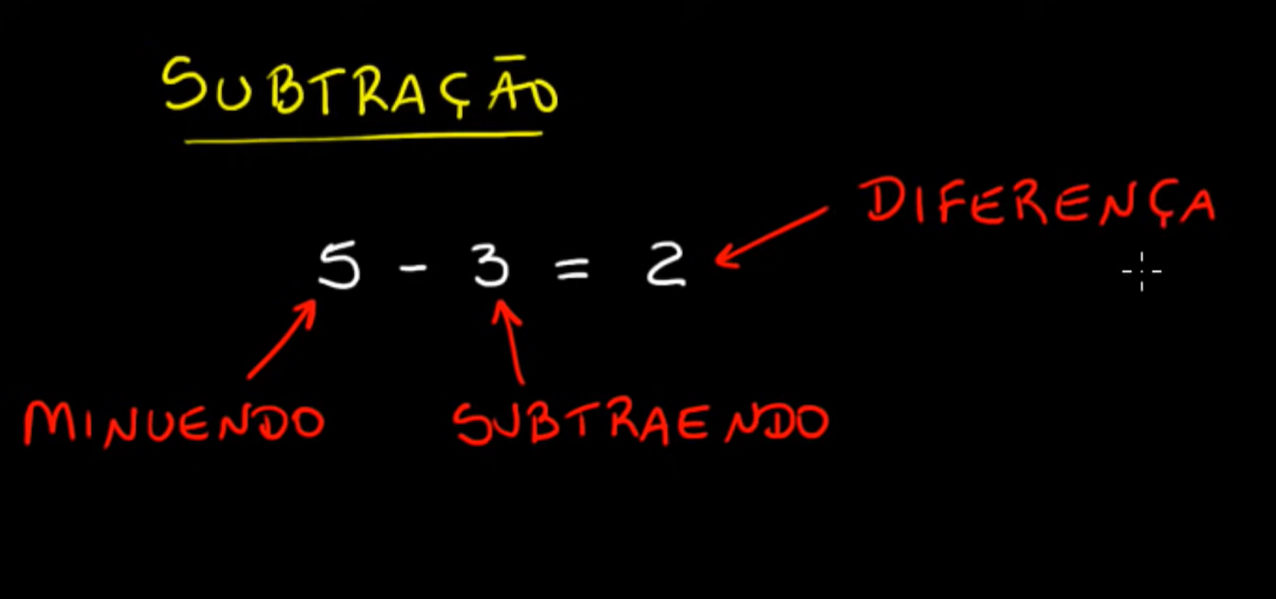 SUBTRAÇÃO
DIFERENÇA
5 - 3 = 2
MINUENDO SUBTRAENDO